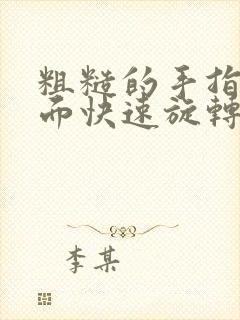 粗糙的手指
而快速旋轉
李某